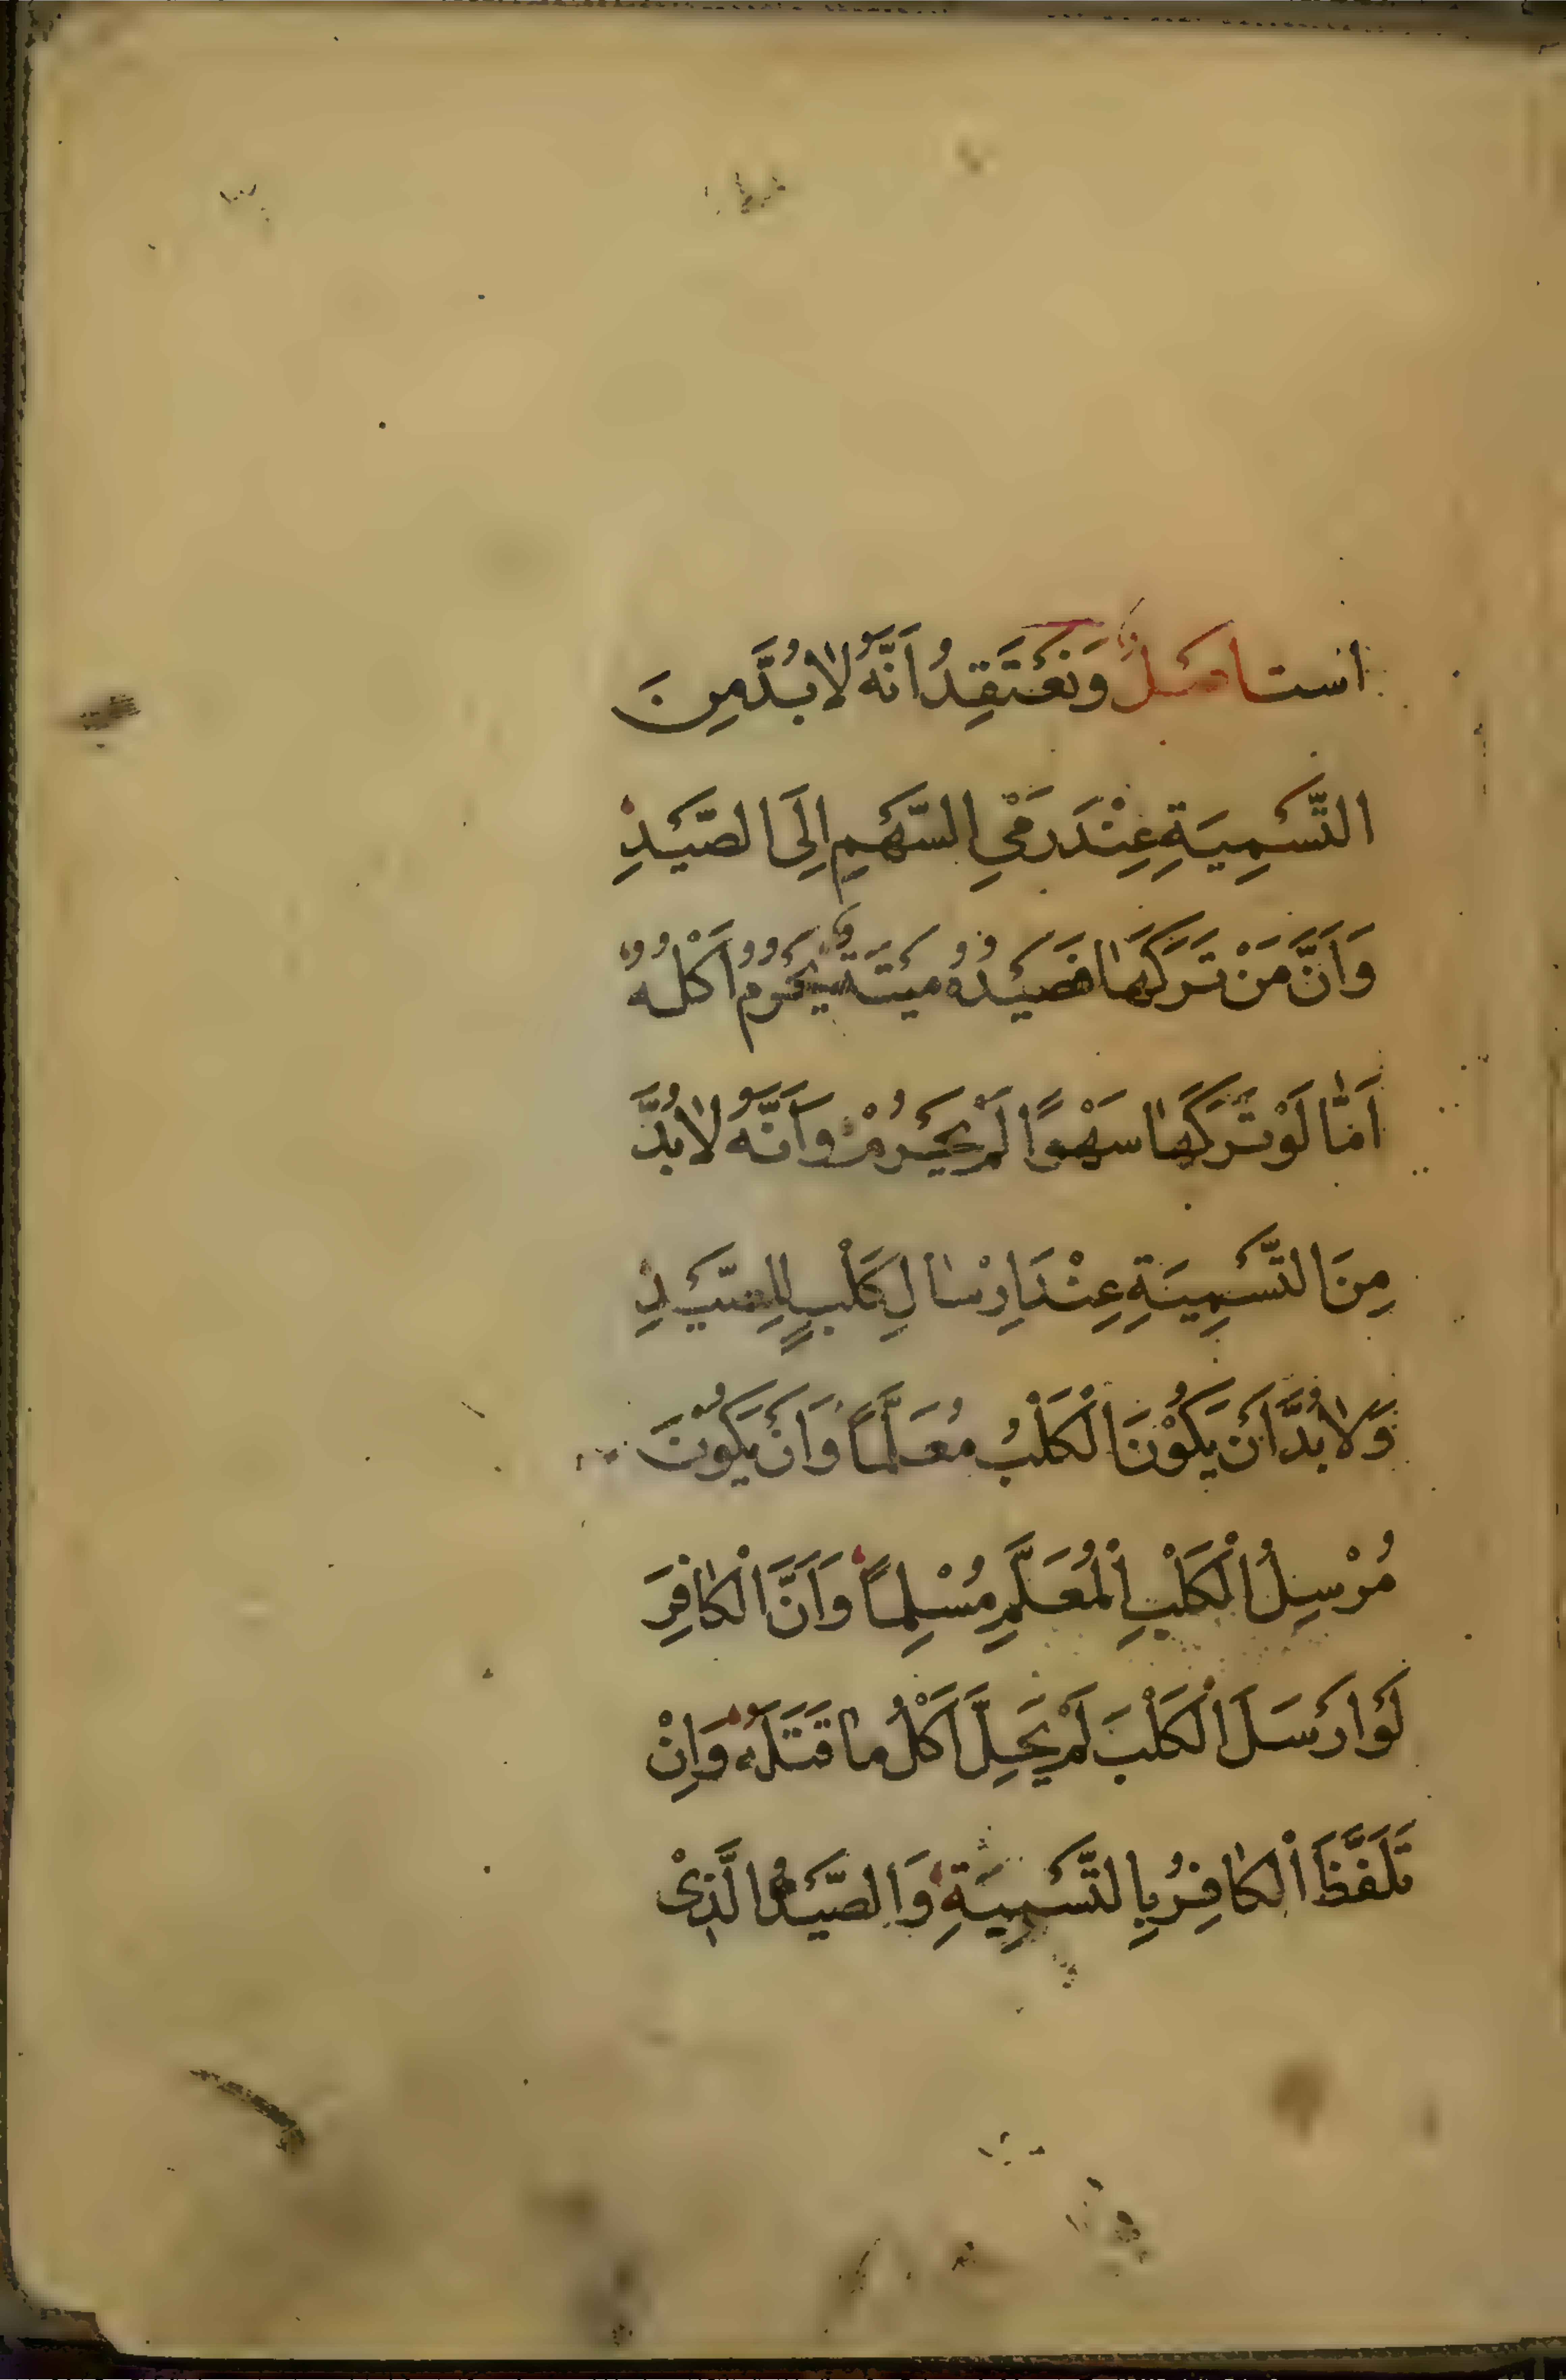 است فصلٌ وَنَعْتَقِدُ اَنَّهُ لٰابُدَّ مِنَ
التَّسْمِيَةِ عِنْدَ رَمْيِ السَّهْمِ اِلَى الصَّيْدِ
وَاَنَّ مَنْ تَرَكَهٰا فَصَيْدُهُ مَيْتَةٌ يَحْرُمُ اَكْلُهُ
اَمّٰا لَوْ تَرَكَهٰا سَهْوًا لَمْ يَحْرُمْ وَاَنَّهُ لٰابُدَّ
مِنَ التَّسْمِيَةِ عِنْدَ اِرْسٰالِ كَلْبٍ لِلصَّيْدِ
وَلٰابُدَّ اَنْ يَكُوْنَ الْكَلْبُ مُعَلَّمًا وَاَنْ يَكُوْنَ
مُرْسِلُ الْكَلْبِ الْمُعَلَّمِ مُسْلِمًا وَاَنَّ الْكٰافِرَ
لَوْ اَرْسَلَ الْكَلْبَ لَمْ يَحِلَّ اَكْلُ مٰا قَتَلَهُ وَاِنْ
تَلَفَّظَ الْكٰافِرُ بِالتَّسْمِيَةِ وَالصَّيْدُ الَّذِىْ